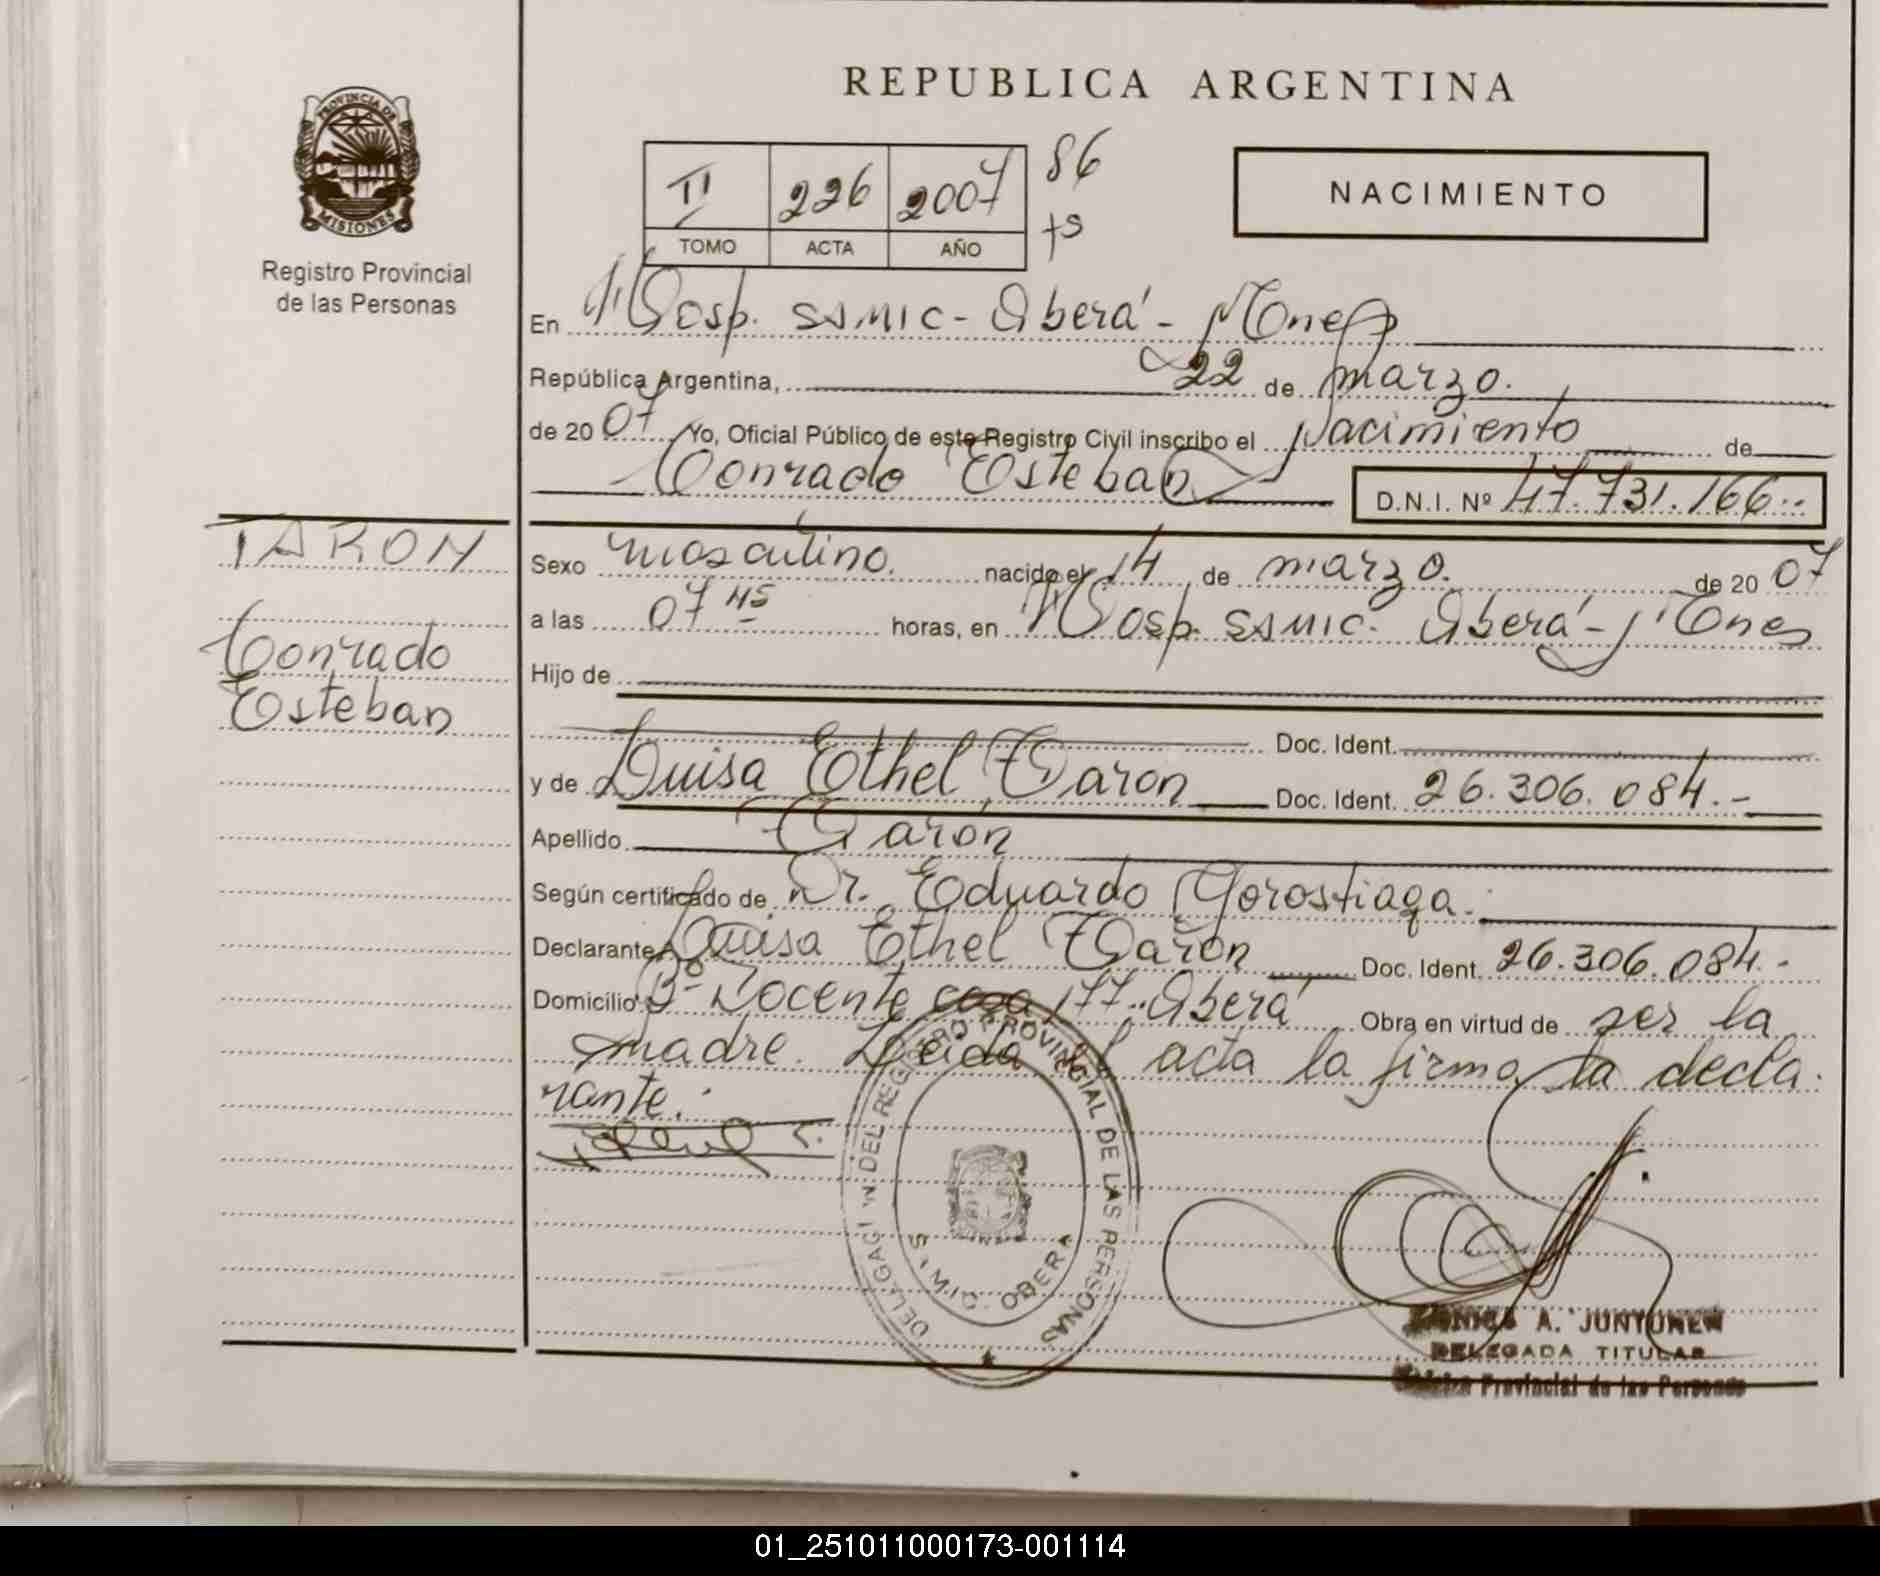 PROVINCIA DE
MISIONES
Registro Provincial
de las Personas
REPUBLICA ARGENTINA
II 226 2007 86
TOMO ACTA AÑO
NACIMIENTO
En Hosp. SAMIC - Oberá - Mnes
República Argentina, 22 de marzo.
de 20 07 Yo, Oficial Público de este Registro Civil inscribo el Nacimiento de
Conrado Esteban D.N.I. Nº 47.731.166.-
TARON
Conrado
Esteban
Sexo masculino. nacido el 14 de marzo. de 20 07
a las 07 45 horas, en Hosp. SAMIC. Oberá - Mnes
Hijo de
Doc. Ident.
y de Luisa Ethel Taron Doc. Ident. 26.306.084.-
Apellido Taron
Según certificado de Dr. Eduardo Gorostiaga.
Declarante Luisa Ethel Taron Doc. Ident. 26.306.084.-
Domicilio Bº Docente casa 177. Oberá Obra en virtud de ser la
madre. Leída el acta la firma la decla
rante.
DELEGACION DEL REGISTRO PROVINCIAL DE LAS PERSONAS
SAMIC. OBERA
A. JUNYUNEN
DELEGADA TITULAR
Provincial de las Personas
01_251011000173-001114